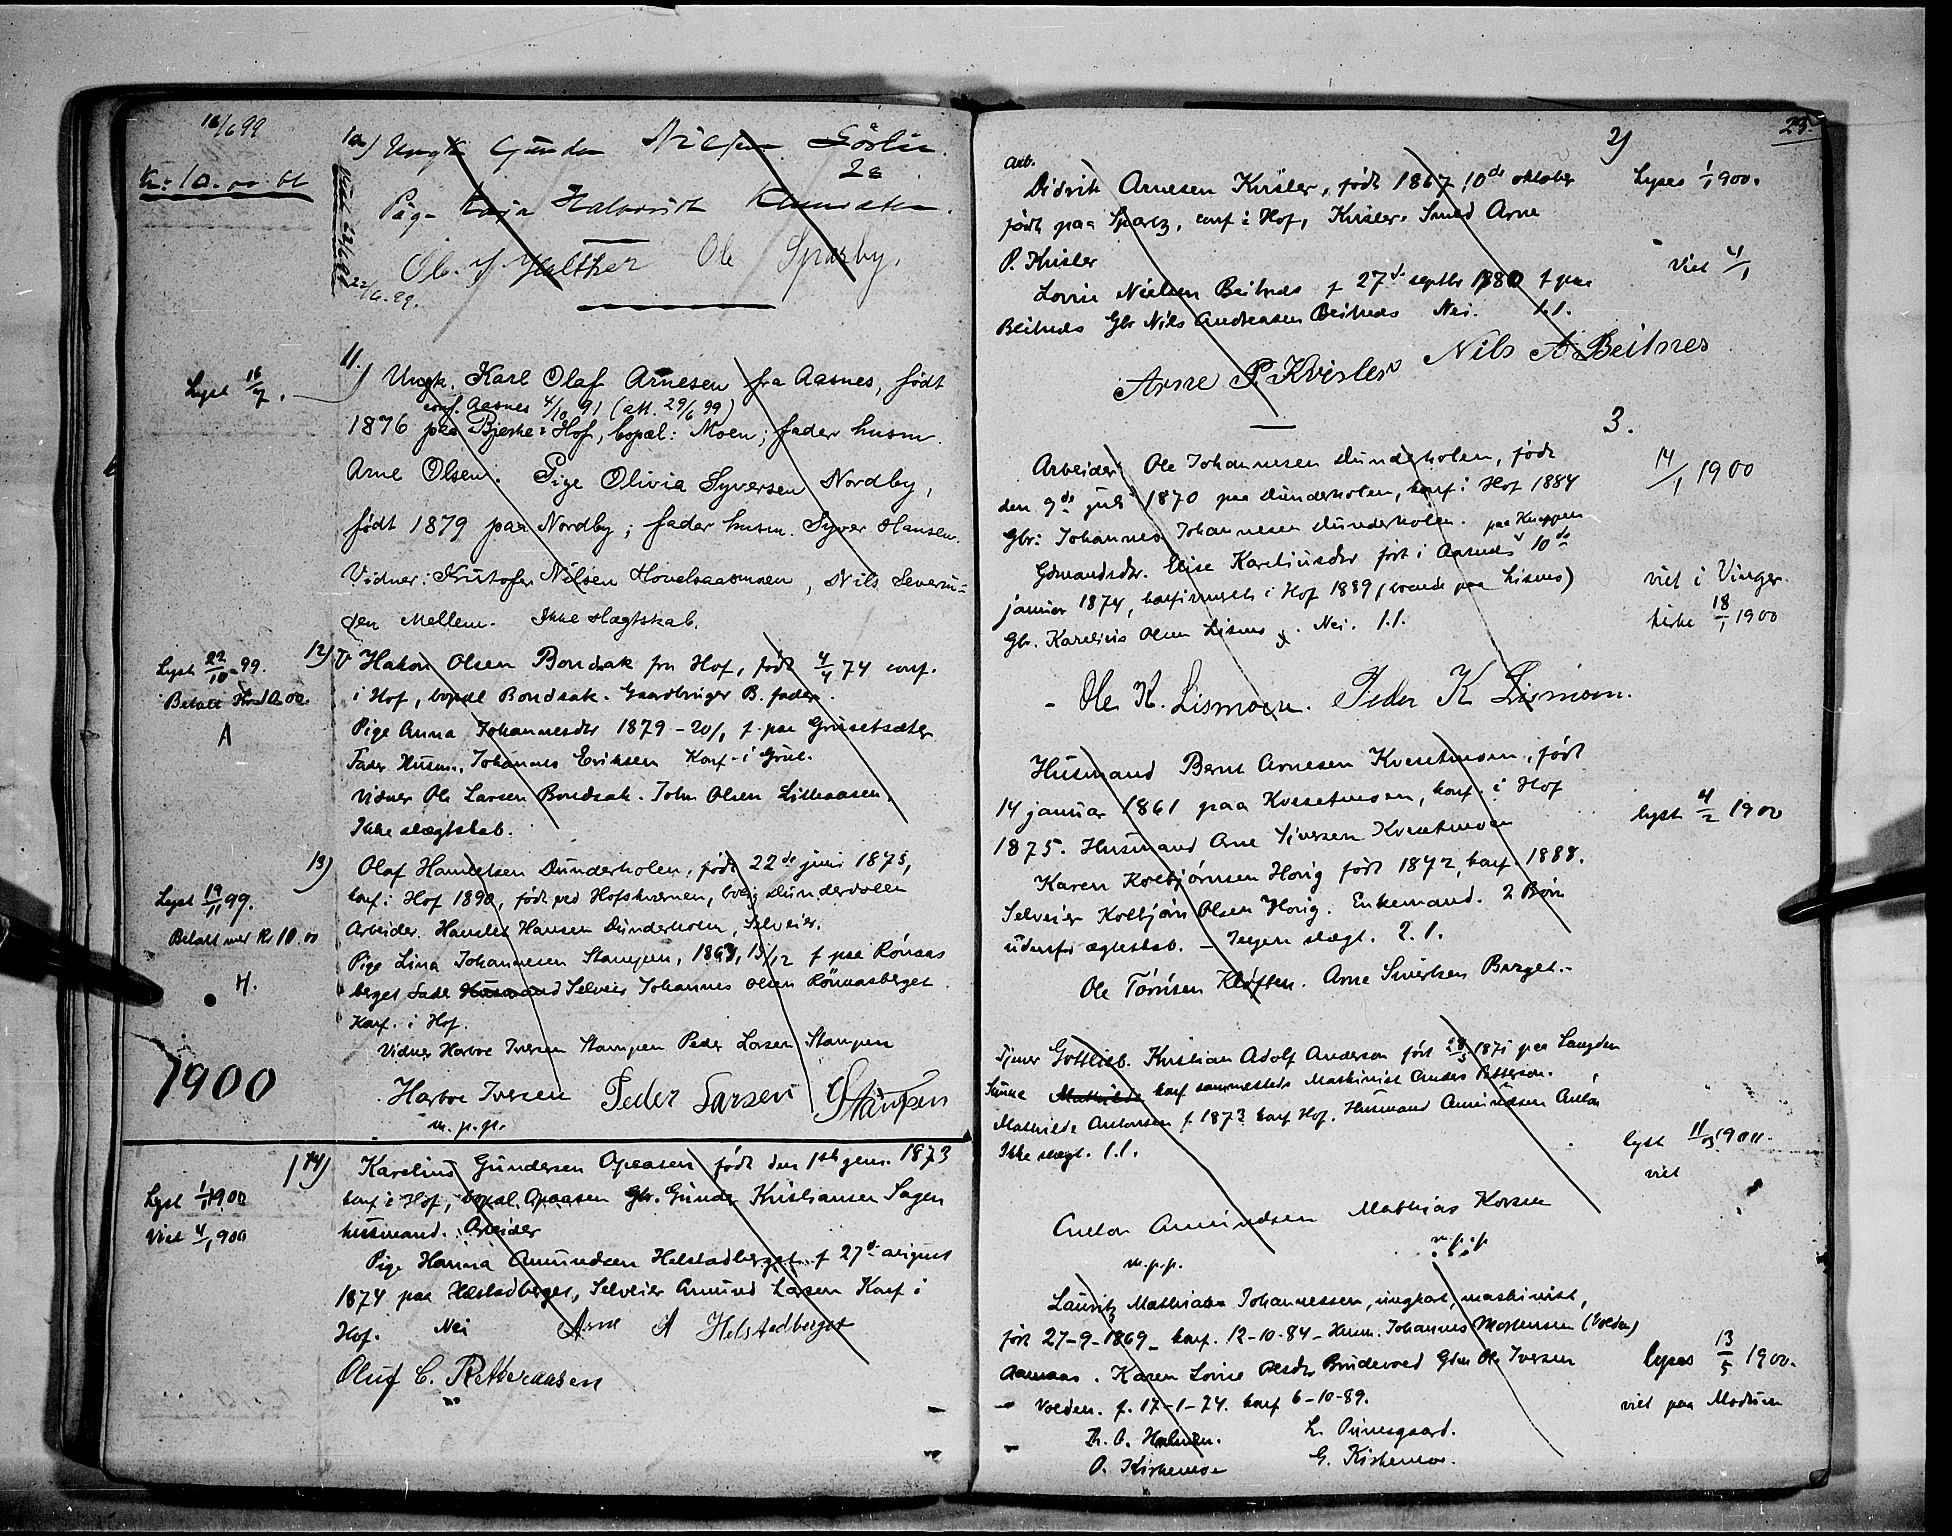 16/6 99
Kr: 10.00
10) Ungk Gunder Nilsen
Pige Halvorsdt
Ole Sparby.
22/6.99.
Lyst 16/7.
11.) Ungk. Karl Olaf Arnesen fra Aasnes, født
conf. Aasnes 4/10 91 (att. 29/6 99)
1876 paa Bjerke i Hof, bopæl: Moen; fader husm.
Arne Olsen. Pige Olivia Syversen Nordby,
født 1879 paa Nordby; fader husm. Syver Hansen.
Vidner: Kristofer Nilsen Hovelsaasmoen, Nils Severin-
sen Mellem. Ikke slægtskab.
Lyst 22/10 99.
Betalt
A
12) Hakon Olsen Bondsak fra Hof, født 4/4 74 conf.
i Hof, bopæl Bondsak. Gaardbruger B. fader.
Pige Anna Johannesdtr 1879 - 20/1 f. paa Grusetsæter
Fader Husm. Johannes Eriksen Konf. i Grue.
Vidner Ole Larsen Bondsak. John Olsen Lilleaasen.
Ikke slægtskab.
Lyst 19/11 99.
Betalt med Kr 10.00
H.
13) Olaf Hanselsen Dunderholen, født 22de juni 1875,
konf. i Hof 1890, født ved Hofskvernen, bolig Dunderholen
Arbeider. Hansel Hansen Dunderholen, Selveier.
Pige Lina Johannesen Stampen, 13/12 f paa Rønaas
berget Fader Husmand Selveier Johannes Olsen Rønaasberget
Konf. i Hof.
Vidner Harboe Iversen Stampen Peder Larsen Stampen
Harboe Iversen Peder Larsen Stampen
m.p.p.
1900
Lyst 1/1 1900
Viet 4/1 900
14) Karelius Gundersen Opaasen født den 1ste jan. 1873
konf i Hof, bopæl Opaasen Gbr. Gunder Kristiansen Sagen
husmand. Arbeider
Pige Hanna Amundsen Helstadberget f 27de august
1874 paa Helstadberget, Selveier Amund Larsen Konf i
Hof. Nei Arne A Helstadberget
Oluf C.
23.
2)
Arb.
Didrik Arnesen Kvisler, født 1867 10de oktober
født paa conf i Hof, Kvisler. Smed Arne
P. Kvisler
Lovise Nielsen Beitnes f 27de septbr 1880 f paa
Beitnes Gbr Nils Andreasen Beitnes Nei. 1.1.
Arne P. Kvisler Nils A Beitnes
Lyses 1/1 1900.
Viet 4/1
3.
Arbeider Ole Johannesen Dunderholen, født
den 9de juli 1870 paa Dunderholen, konf i Hof 1884
Gbr: Johannes Johannesen Dunderholen. paa Knappen
Gdmandsdtr. Elise Kareliusdtr født i Aasnes 10de
januar 1874, konfirmeret i Hof 1889 (boende paa Lismo)
Gbr. Karelius Olsen Lismo. Nei. 1.1.
Ole K. Lismoen. Peder K Lismoen.
14/1 1900
viet i Vinger
kirke 18/1 1900
Husmand Bernt Arnesen Kvesetmoen, født
14 januar 1861 paa Kvesetmoen, konf. i Hof
1875. Husmand Arne Siversen Kvesetmoen
Karen Kolbjørnsen Horig født 1872, konf. 1888.
Selveier Kolbjørn Olsen Horig. Enkemand. 2 Børn
udenfr ægteskab. – Ingen slægt. 2.1.
Ole Tørrisen Kløften. Arne Sivertsen Berget.
lyst 4/2 1900
Tjener Gottlieb Kristian Adolf Anderson født 28/5 1871 paa Langden
Sunne Mathilde konf sammesteds Maskinist Anders Petterson.
Mathilde Antonsen f. 1873 konf Hof. Husmand Amundsen Anton
Ikke slægt. 1.1.
Anton Amundsen Mathias Korsen
m.p.p. m.p.p
lyst 11/3 1900.
viet
Lauritz Mathias Johannessen, ungkar, maskinist,
født 27-9-1869 - konf. 12-10-84 - Husm. Johannes Mortensen (Volden)
Aamaas. Karen Lovise Olsdtr Brudevold Gdm Ole Iversen
Volden. f. 17-1-74. konf 6-10-89.
O. Kirkemoe G. Kirkemoe.
lyses 13/5 1900.
viet paa Modum